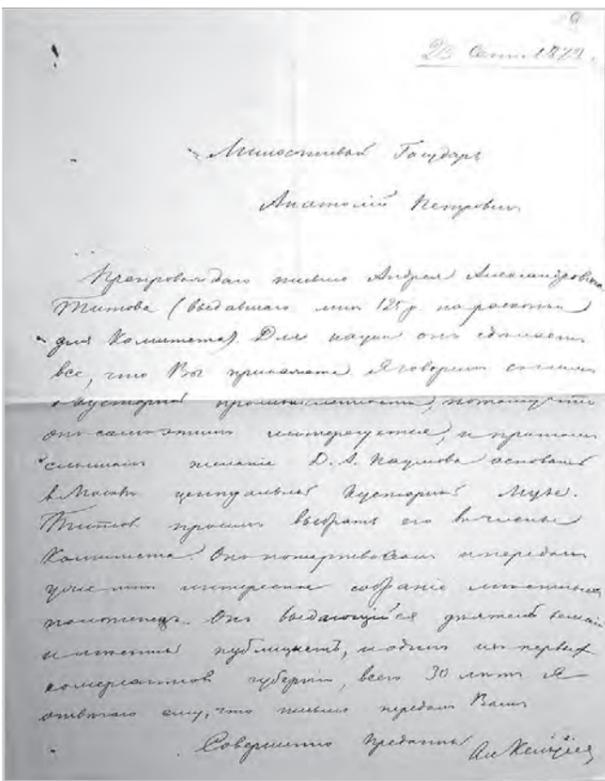 9
23 Сент 1878.
Милостивый Государь
Анатолий Петрович
Препровождаю письмо Андрея Александровича
Титова (выдавшаго мне 125 р. на раскопки
для Комитета). Для науки онъ сделаетъ
все, что Вы прикажете. Я говорилъ съ нимъ
о кустарной промышленности, потому что
онъ самъ этимъ интересуется, и притомъ
слышалъ желание Д. А. Наумова основать
въ Москве центральный Кустарный Музей.
Титов просилъ выбрать его въ члены
Комитета. Онъ пожертвовалъ и передалъ
уже мне интересное собрание
полотенецъ. Онъ выдающийся деятель
и публицистъ, и одинъ изъ первыхъ
комерсантовъ губернии, всего 30 летъ. Я
отвечаю ему, что письмо передалъ Вамъ
Совершенно преданный